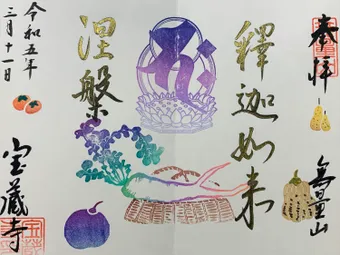 奉拝
無量山
釋迦如来
涅槃
令和五年
三月十一日
宝蔵寺